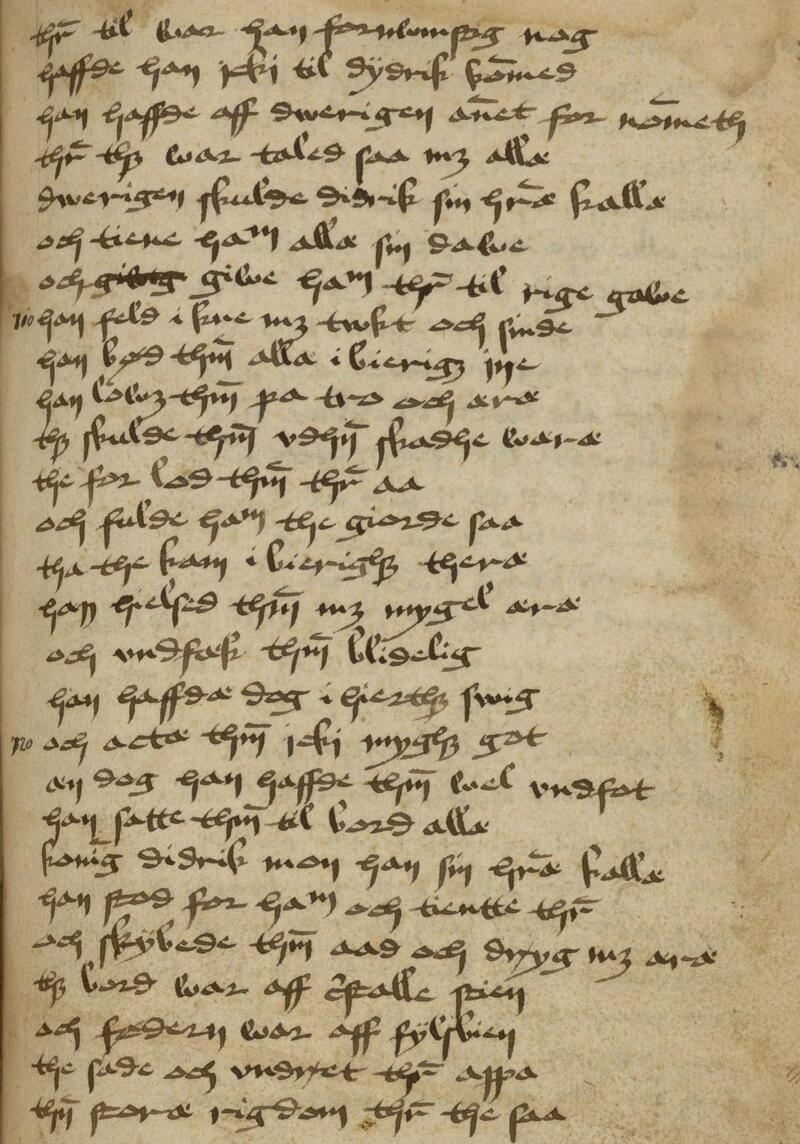 thr̄ til war han fornwmstig nog
haffde han icki til dÿdrik bōmed
han haffde aff dwerigen an̄et for nōmeth
thr̄ thꝫ war taled saa mꝫ allæ
dwerigen skulde didrik sin hr̄æ kallæ
och tiene hām allæ sin dawe
och giwe hām thr̄ til rige gawe
han feld i kne mꝫ twkt och sinde
han bød thm̄ allæ i bierigꝫ ine
han lowꝫ thm̄ pa tro och æræ
thꝫ skulde thm̄ vdhn̄ skadhe wæræ
the for lod thm̄ thr̄ aa
och fulde hām the giorde saa
tha the kam i bierighꝫ theræ
han hielsed thm̄ mꝫ mygel æræ
och vndfæk thm̄ blidelig
han haffdæ dog i hierthꝫ swig
och actæ thm̄ icki myghꝫ got
æn dog han haffde thm̄ wel vndfot
han satte thm̄ til bord allæ
konīg didrik mon han sin hr̄æ kallæ
han stod for hām och tientte thr̄
och skÿbede thm̄ aad och dryg mꝫ æræ
thꝫ bord war aff c̄stalle stien
och fødern war aff fÿlsbien
the sade och vndret thr̄ appa
thn̄ storæ rigdom thr̄ the saa